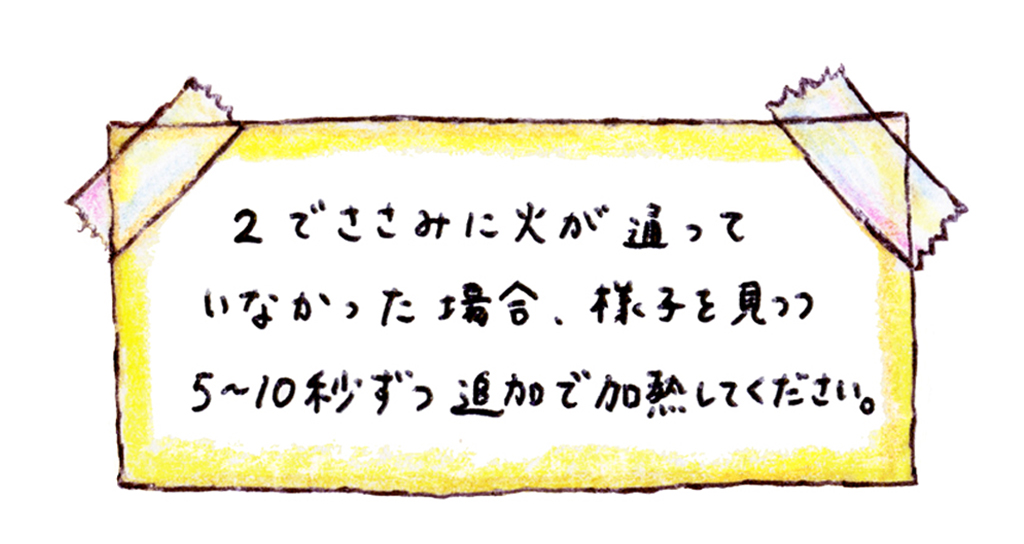 2でささみに火が通って
いなかった場合、様子を見つつ
5~10秒ずつ追加で加熱してください。